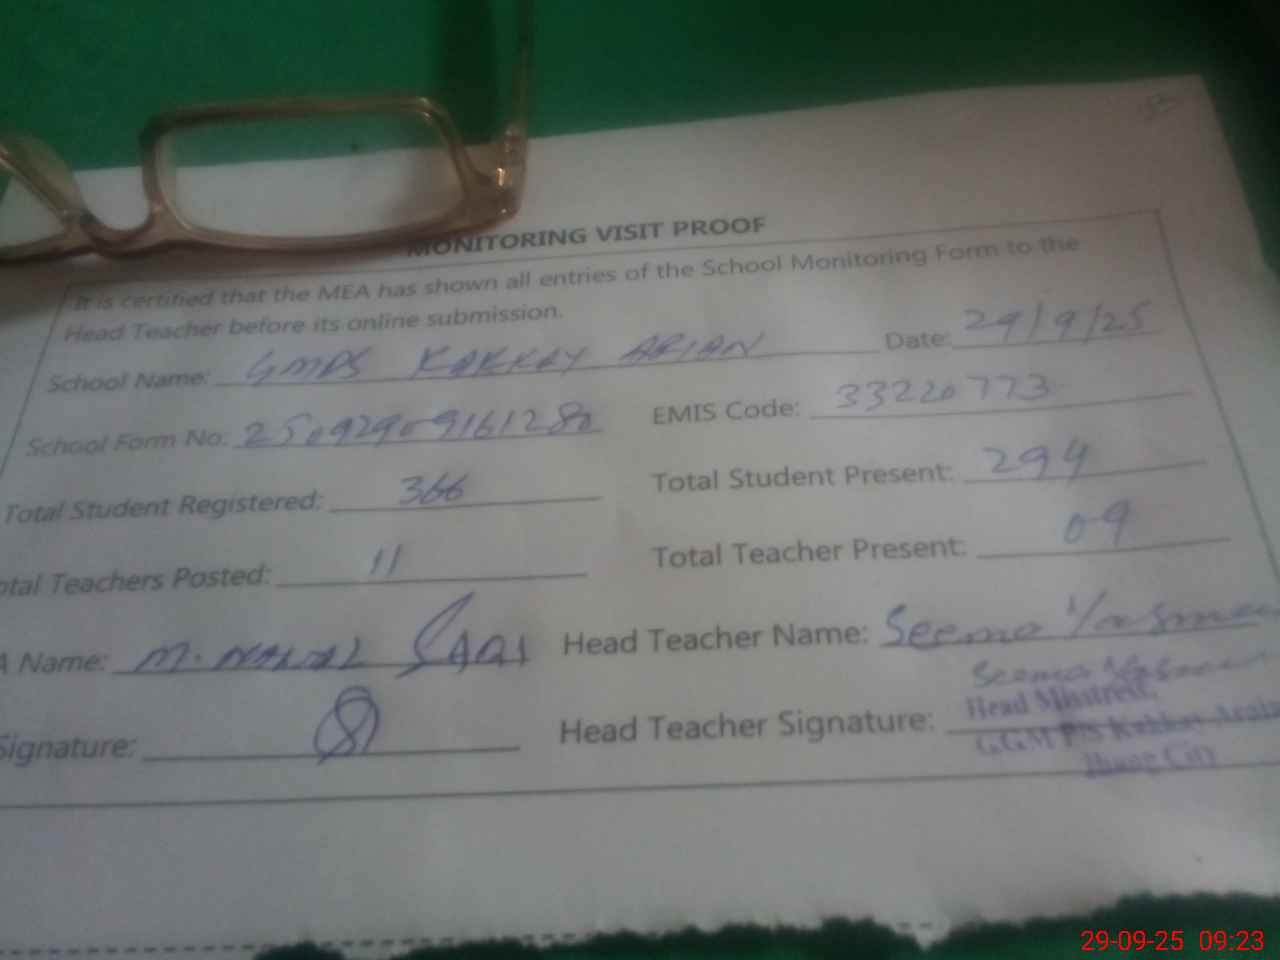 MONITORING VISIT PROOF
It is certified that the MEA has shown all entries of the School Monitoring Form to the
Head Teacher before its online submission.
School Name: GMPS KAKKAY ARIAN Date: 29/9/25
School Form No. 25092909161280 EMIS Code: 33220773
Total Student Registered: 366 Total Student Present: 294
otal Teachers Posted: 11 Total Teacher Present: 09
A Name: M. NAWAZ SAQI Head Teacher Name: Seema
Signature: Head Teacher Signature: Seema
Head Mistress,
GGMP/S Kakkay
Jhang City
29-09-25 09:23